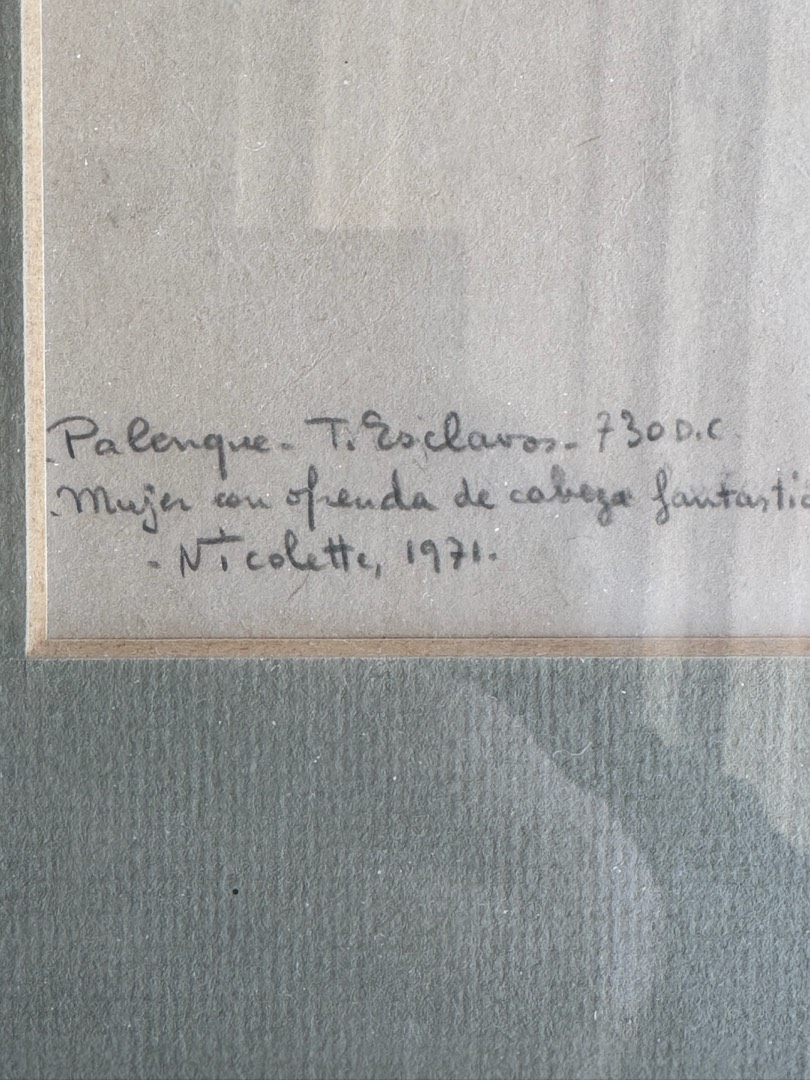 Palenque - T. Esclavos - 730 D.C.
Mujer con ofrenda de cabeza fantastic
- Nicolette, 1971.